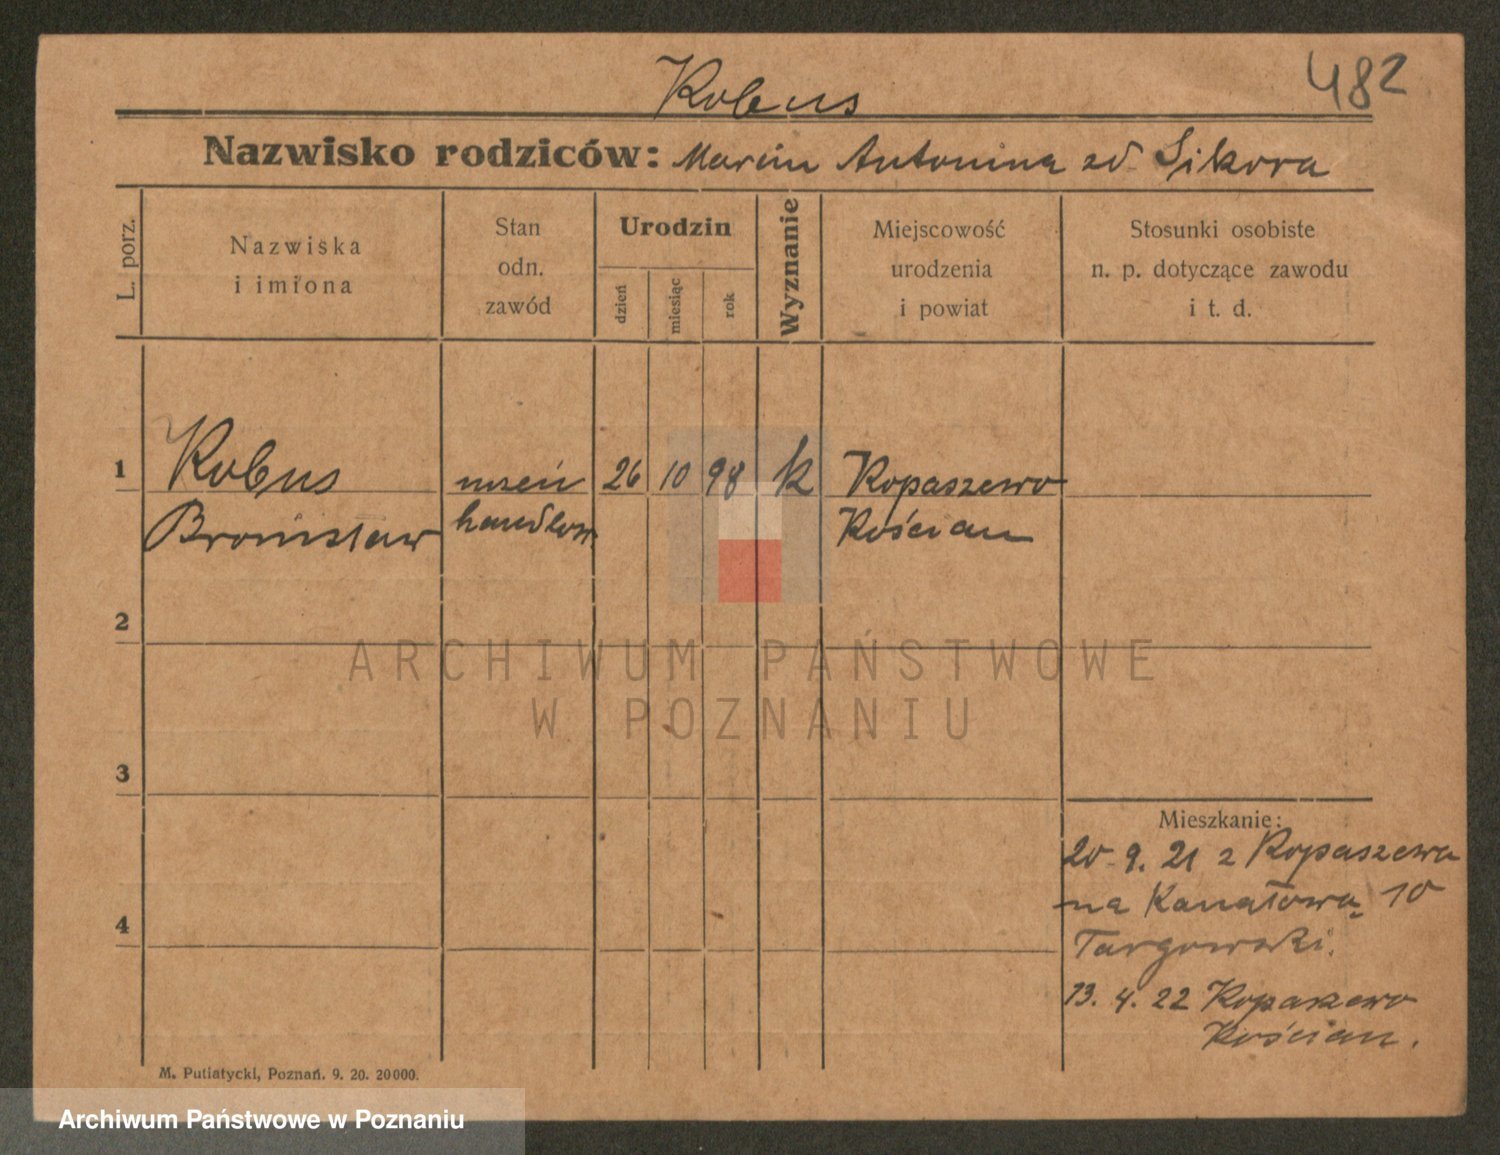 482
Kobus
Nazwisko rodziców: Marcin Antonina zd Sikora
L. porz.
Nazwiska
i imiona
Stan
odn.
zawód
Urodzin
dzień
miesiąc
rok
Wyznanie
Miejscowość
urodzenia
i powiat
Stosunki osobiste
n. p. dotyczące zawodu
i t. d.
1
Kobus
Bronisław
uczeń
handlow.
26
10
98
k
Kopaszewo
Kościan
2
3
4
Mieszkanie:
20. 9. 21 z Kopaszewa
na Kanałową 10
Targowski.
13. 4. 22 Kopaszewo
Kościan.
M. Putiatycki, Poznań. 9. 20. 20000.
ARCHIWUM PAŃSTWOWE
W POZNANIU
Archiwum Państwowe w Poznaniu